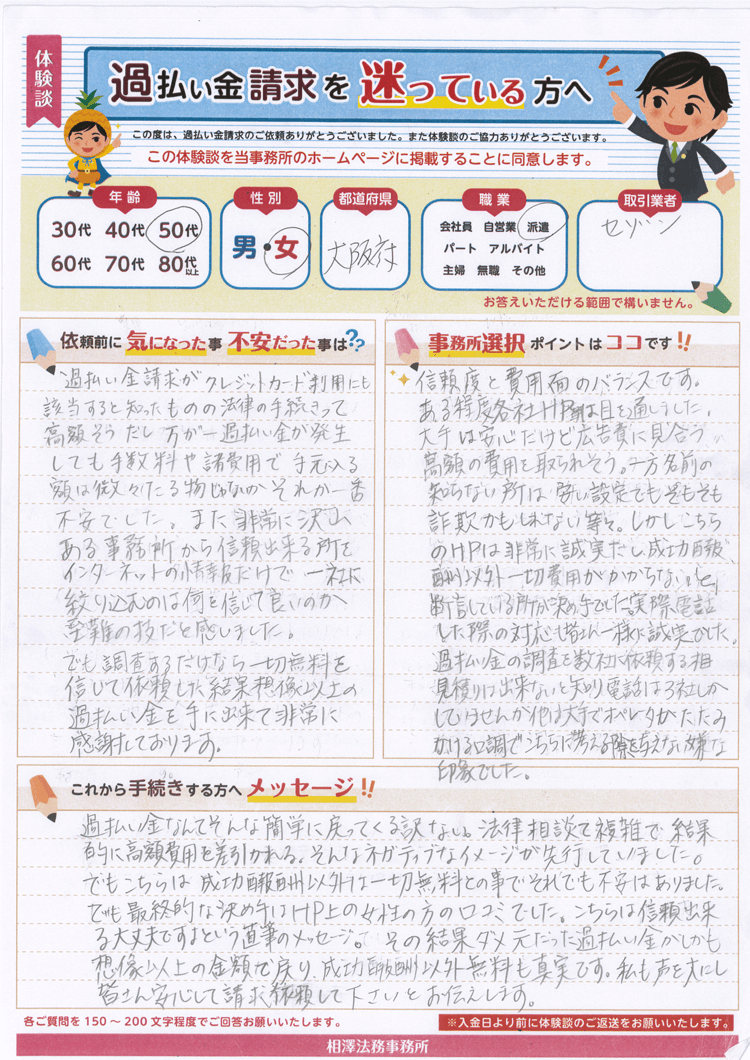 体験談
過払い金請求を迷っている方へ
この度は、過払い金請求のご依頼ありがとうございました。また体験談のご協力ありがとうございます。
この体験談を当事務所のホームページに掲載することに同意します。
年齢 性別 都道府県 職業 取引業者
30代 40代 50代
60代 70代 80代以上
男・女
大阪府
会社員 自営業 派遣
パート アルバイト
主婦 無職 その他
セゾン
お答えいただける範囲で構いません。
依頼前に気になった事 不安だった事は??
過払い金請求がクレジットカード利用にも
該当すると知ったものの法律の手続きって
高額そうだし万が一過払い金が発生
しても手数料や諸費用で手元に入る
額は微々たる物じゃないかそれが一番
不安でした。また非常に沢山
ある事務所から信頼出来る所を
インターネットの情報だけで一社に
絞り込むのは何を信じて良いのか
至難の技だと感じました。
でも調査するだけなら一切無料を
信じて依頼した結果想像以上の
過払い金を手に出来て非常に
感謝しております。
事務所選択ポイントはココです!!
信頼度と費用面のバランスです。
ある程度各社HPは目を通しました。
大手は安心だけど広告費に見合う
高額の費用を取られそう。一方名前の
知らない所は安い設定でもそもそも
詐欺かもしれない等々。しかしこちら
のHPは非常に誠実だし成功報
酬以外一切費用がかからない。と
断言している所が決め手でした。実際電話
した際の対応も皆さん一様に誠実でした。
過払い金の調査を数社に依頼する相
見積りは出来ないと知り電話は3社しか
していませんが他は大手でオペレータがたたみ
かける口調でこちらに考える隙を与えない嫌な
印象でした。
これから手続きする方へメッセージ!!
過払い金なんてそんな簡単に戻ってくる訳ない。法律相談って複雑で結果
的に高額費用を差引かれる。そんなネガティブなイメージが先行していました。
でもこちらは成功報酬以外は一切無料との事でそれでも不安はありました。
でも最終的な決め手はHP上の女性の方の口コミでした。こちらは信頼出来
る大丈夫ですよという直筆のメッセージ。その結果ダメ元だった過払い金がしかも
想像以上の金額で戻り、成功報酬以外無料も真実です。私も声を大にし
皆さん安心して請求依頼して下さいとお伝えします。
各ご質問を150～200文字程度でご回答お願いいたします。
※入金日より前に体験談のご返送をお願いいたします。
相澤法務事務所